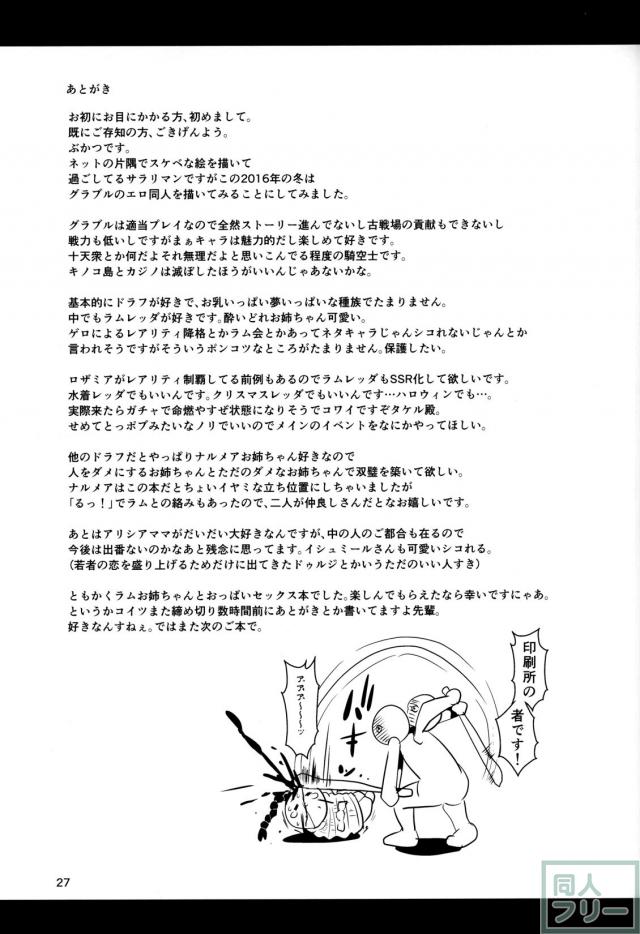 あとがき
お初にお目にかかる方、初めまして。
既にご存知の方、ごきげんよう。
ぶかつです。
ネットの片隅でスケベな絵を描いて
過ごしてるサラリマンですがこの2016年の冬は
グラブルのエロ同人を描いてみることにしてみました。
グラブルは適当プレイなので全然ストーリー進んでないし古戦場の貢献もできないし
戦力も低いしですがまぁキャラは魅力的だし楽しめて好きです。
十天衆とか何だよそれ無理だよと思いこんでる程度の騎空士です。
キノコ島とカジノは滅ぼしたほうがいいんじゃあないかな。
基本的にドラフが好きで、お乳いっぱい夢いっぱいな種族でたまりません。
中でもラムレッダが好きです。酔いどれお姉ちゃん可愛い。
ゲロによるレアリティ降格とかラム会とかあってネタキャラじゃんシコれないじゃんとか
言われそうですがそういうポンコツなところがたまりません。保護したい。
ロザミアがレアリティ制覇してる前例もあるのでラムレッダもSSR化して欲しいです。
水着レッダでもいいんです。クリスマスレッダでもいいんです…ハロウィンでも…。
実際来たらガチャで命燃やすぜ状態になりそうでコワイですぞタケル殿。
せめてとっポブみたいなノリでいいのでメインのイベントをなにかやってほしい。
他のドラフだとやっぱりナルメアお姉ちゃん好きなので
人をダメにするお姉ちゃんとただのダメなお姉ちゃんで双璧を築いて欲しい。
ナルメアはこの本だとちょいイヤミな立ち位置にしちゃいましたが
「るっ！」でラムとの絡みもあったので、二人が仲良しさんだとなお嬉しいです。
あとはアリシアママがだいだい大好きなんですが、中の人のご都合も在るので
今後は出番ないのかなあと残念に思ってます。イシュミールさんも可愛いシコれる。
(若者の恋を盛り上げるためだけに出てきたドゥルジとかいうただのいい人すき)
ともかくラムお姉ちゃんとおっぱいセックス本でした。楽しんでもらえたなら幸いですにゃあ。
というかコイツまた締め切り数時間前にあとがきとか書いてますよ先輩。
好きなんすねぇ。ではまた次のご本で。
印刷所の
者です！
ズギン
ブブブ～～～ッ
27
同人
フリー